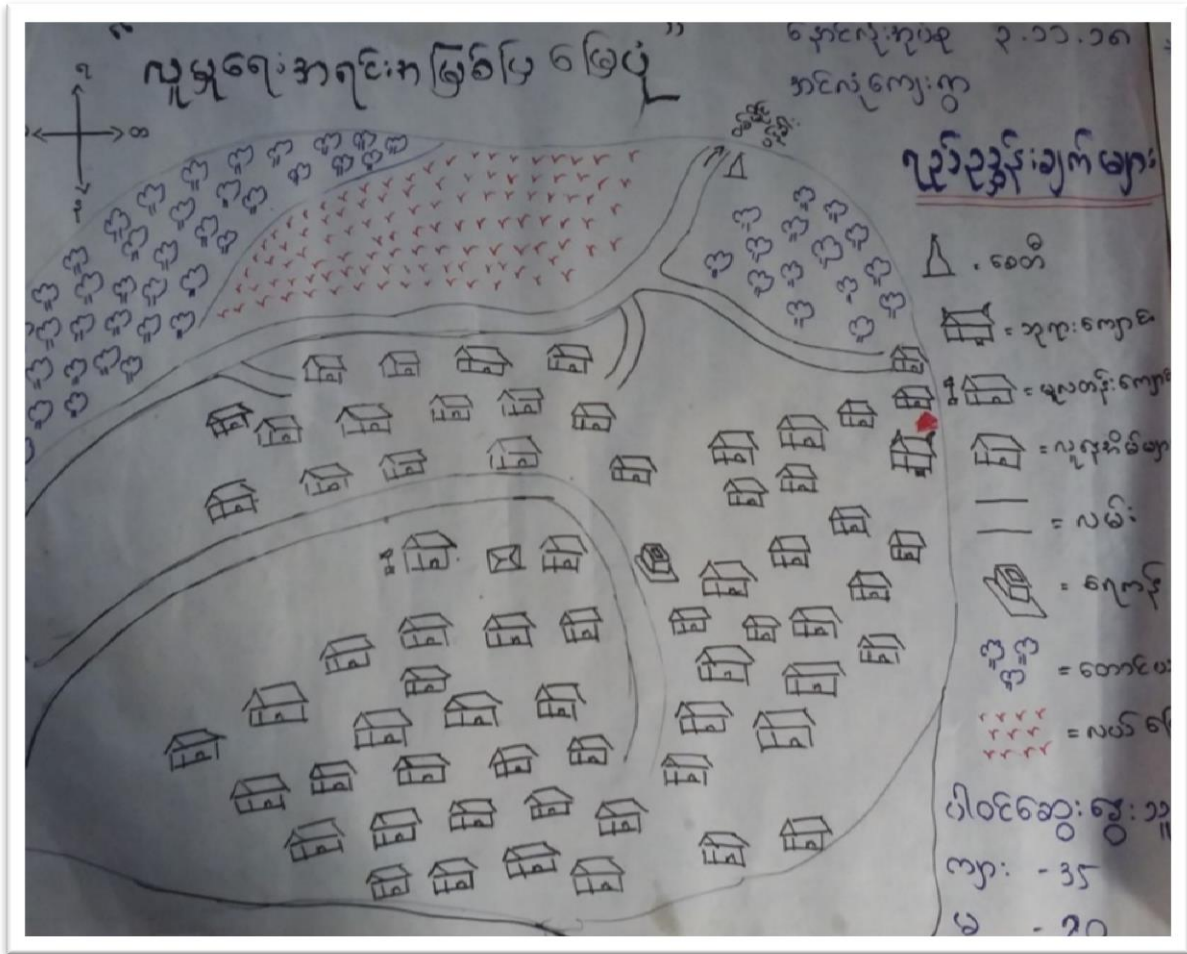 "လူမှုရေးအရင်းအမြစ်ပြ မြေပုံ"
နောင်လုံးအုပ်စု ၃.၁၁.၁၈
အင်လုံကျေးရွာ
ရည်ညွှန်းချက်များ
= စေတီ
= ဘုရားကျောင်း
= မူလတန်းကျောင်း
= လူနေအိမ်များ
= လမ်း
= ရေကန်
= တောင်
= လယ်
ပါဝင်ဆွေးနွေးသူ
ကျား - 35
မ - 20